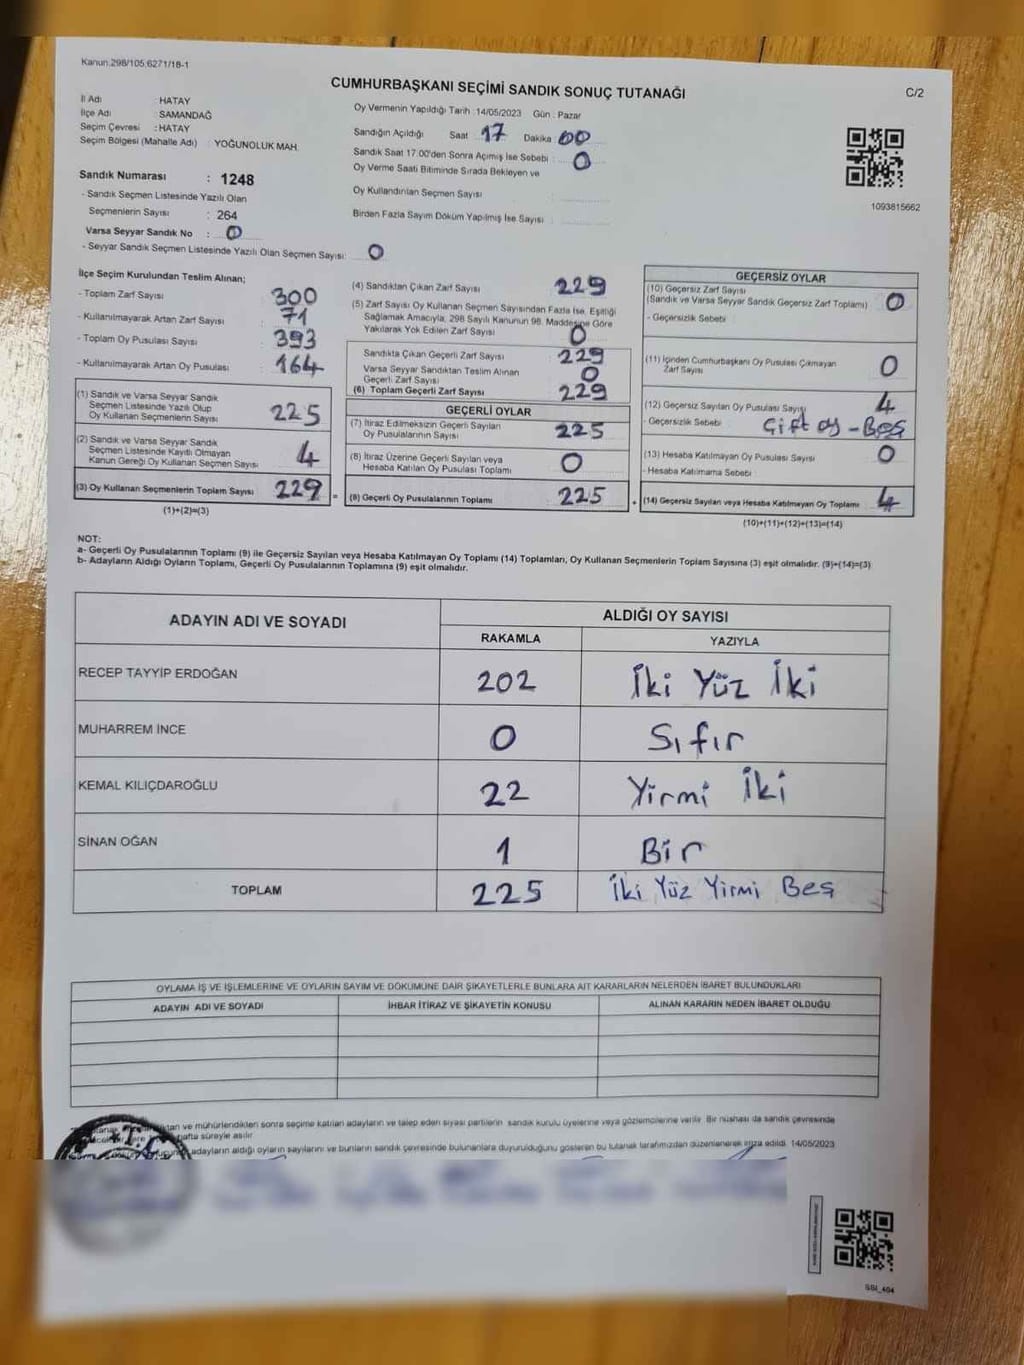 Kanun.298/105,6271/18-1
CUMHURBAŞKANI SEÇİMİ SANDIK SONUÇ TUTANAĞI
C/2
İl Adı : HATAY
İlçe Adı : SAMANDAĞ
Seçim Çevresi : HATAY
Seçim Bölgesi (Mahalle Adı) : YOĞUNOLUK MAH.
Sandık Numarası : 1248
- Sandık Seçmen Listesinde Yazılı Olan
Seçmenlerin Sayısı : 264
Varsa Seyyar Sandık No : 0
- Seyyar Sandık Seçmen Listesinde Yazılı Olan Seçmen Sayısı: 0
Oy Vermenin Yapıldığı Tarih :14/05/2023 Gün : Pazar
Sandığın Açıldığı Saat 17 Dakika 00
Sandık Saat 17:00'den Sonra Açımış İse Sebebi : 0
Oy Verme Saati Bitiminde Sırada Bekleyen ve
Oy Kullandırılan Seçmen Sayısı :
Birden Fazla Sayım Döküm Yapılmış İse Sayısı :
1093815662
İlçe Seçim Kurulundan Teslim Alınan;
- Toplam Zarf Sayısı : 300
- Kullanılmayarak Artan Zarf Sayısı : 71
- Toplam Oy Pusulası Sayısı : 393
- Kullanılmayarak Artan Oy Pusulası : 164
(1) Sandık ve Varsa Seyyar Sandık
Seçmen Listesinde Yazılı Olup
Oy Kullanan Seçmenlerin Sayısı : 225
(2) Sandık ve Varsa Seyyar Sandık
Seçmen Listesinde Kayıtlı Olmayan
Kanun Gereği Oy Kullanan Seçmen Sayısı : 4
(3) Oy Kullanan Seçmenlerin Toplam Sayısı : 229
(1)+(2)=(3)
(4) Sandıktan Çıkan Zarf Sayısı : 229
(5) Zarf Sayısı Oy Kullanan Seçmen Sayısından Fazla İse, Eşitliği
Sağlamak Amacıyla, 298 Sayılı Kanunun 98. Maddesine Göre
Yakılarak Yok Edilen Zarf Sayısı : 0
Sandıkta Çıkan Geçerli Zarf Sayısı : 229
Varsa Seyyar Sandıktan Teslim Alınan
Geçerli Zarf Sayısı : 0
(6) Toplam Geçerli Zarf Sayısı : 229
GEÇERLİ OYLAR
(7) İtiraz Edilmeksizin Geçerli Sayılan
Oy Pusulalarının Sayısı : 225
(8) İtiraz Üzerine Geçerli Sayılan veya
Hesaba Katılan Oy Pusulası Toplamı : 0
(9) Geçerli Oy Pusulalarının Toplamı : 225
GEÇERSİZ OYLAR
(10) Geçersiz Zarf Sayısı
(Sandık ve Varsa Seyyar Sandık Geçersiz Zarf Toplamı) : 0
- Geçersizlik Sebebi :
(11) İçinden Cumhurbaşkanı Oy Pusulası Çıkmayan
Zarf Sayısı : 0
(12) Geçersiz Sayılan Oy Pusulası Sayısı : 4
- Geçersizlik Sebebi : Çift oy - Boş
(13) Hesaba Katılmayan Oy Pusulası Sayısı : 0
- Hesaba Katılmama Sebebi :
(14) Geçersiz Sayılan veya Hesaba Katılmayan Oy Toplamı : 4
(10)+(11)+(12)+(13)=(14)
NOT:
a- Geçerli Oy Pusulalarının Toplamı (9) ile Geçersiz Sayılan veya Hesaba Katılmayan Oy Toplamı (14) Toplamları, Oy Kullanan Seçmenlerin Toplam Sayısına (3) eşit olmalıdır. (9)+(14)=(3)
b- Adayların Aldığı Oyların Toplamı, Geçerli Oy Pusulalarının Toplamına (9) eşit olmalıdır.
ADAYIN ADI VE SOYADI
ALDIĞI OY SAYISI
RAKAMLA YAZIYLA
RECEP TAYYİP ERDOĞAN 202 İki Yüz İki
MUHARREM İNCE 0 Sıfır
KEMAL KILIÇDAROĞLU 22 Yirmi İki
SİNAN OĞAN 1 Bir
TOPLAM 225 İki Yüz Yirmi Beş
OYLAMA İŞ VE İŞLEMLERİNE VE OYLARIN SAYIM VE DÖKÜMÜNE DAİR ŞİKAYETLERLE BUNLARA AİT KARARLARIN NELERDEN İBARET BULUNDUKLARI
ADAYIN ADI VE SOYADI İHBAR İTİRAZ VE ŞİKAYETİN KONUSU ALINAN KARARIN NEDEN İBARET OLDUĞU
ve mühürlendikten sonra seçime katılan adayların ve talep eden siyasi partilerin sandık kurulu üyelerine veya gözlemcilerine verilir. Bir nüshası da sandık çevresinde
hafta süreyle asılır.
adayların aldığı oyların sayılarını ve bunların sandık çevresinde bulunanlara duyurulduğunu gösteren bu tutanak tarafımızdan düzenlenerek imza edildi. 14/05/2023
SSI_404